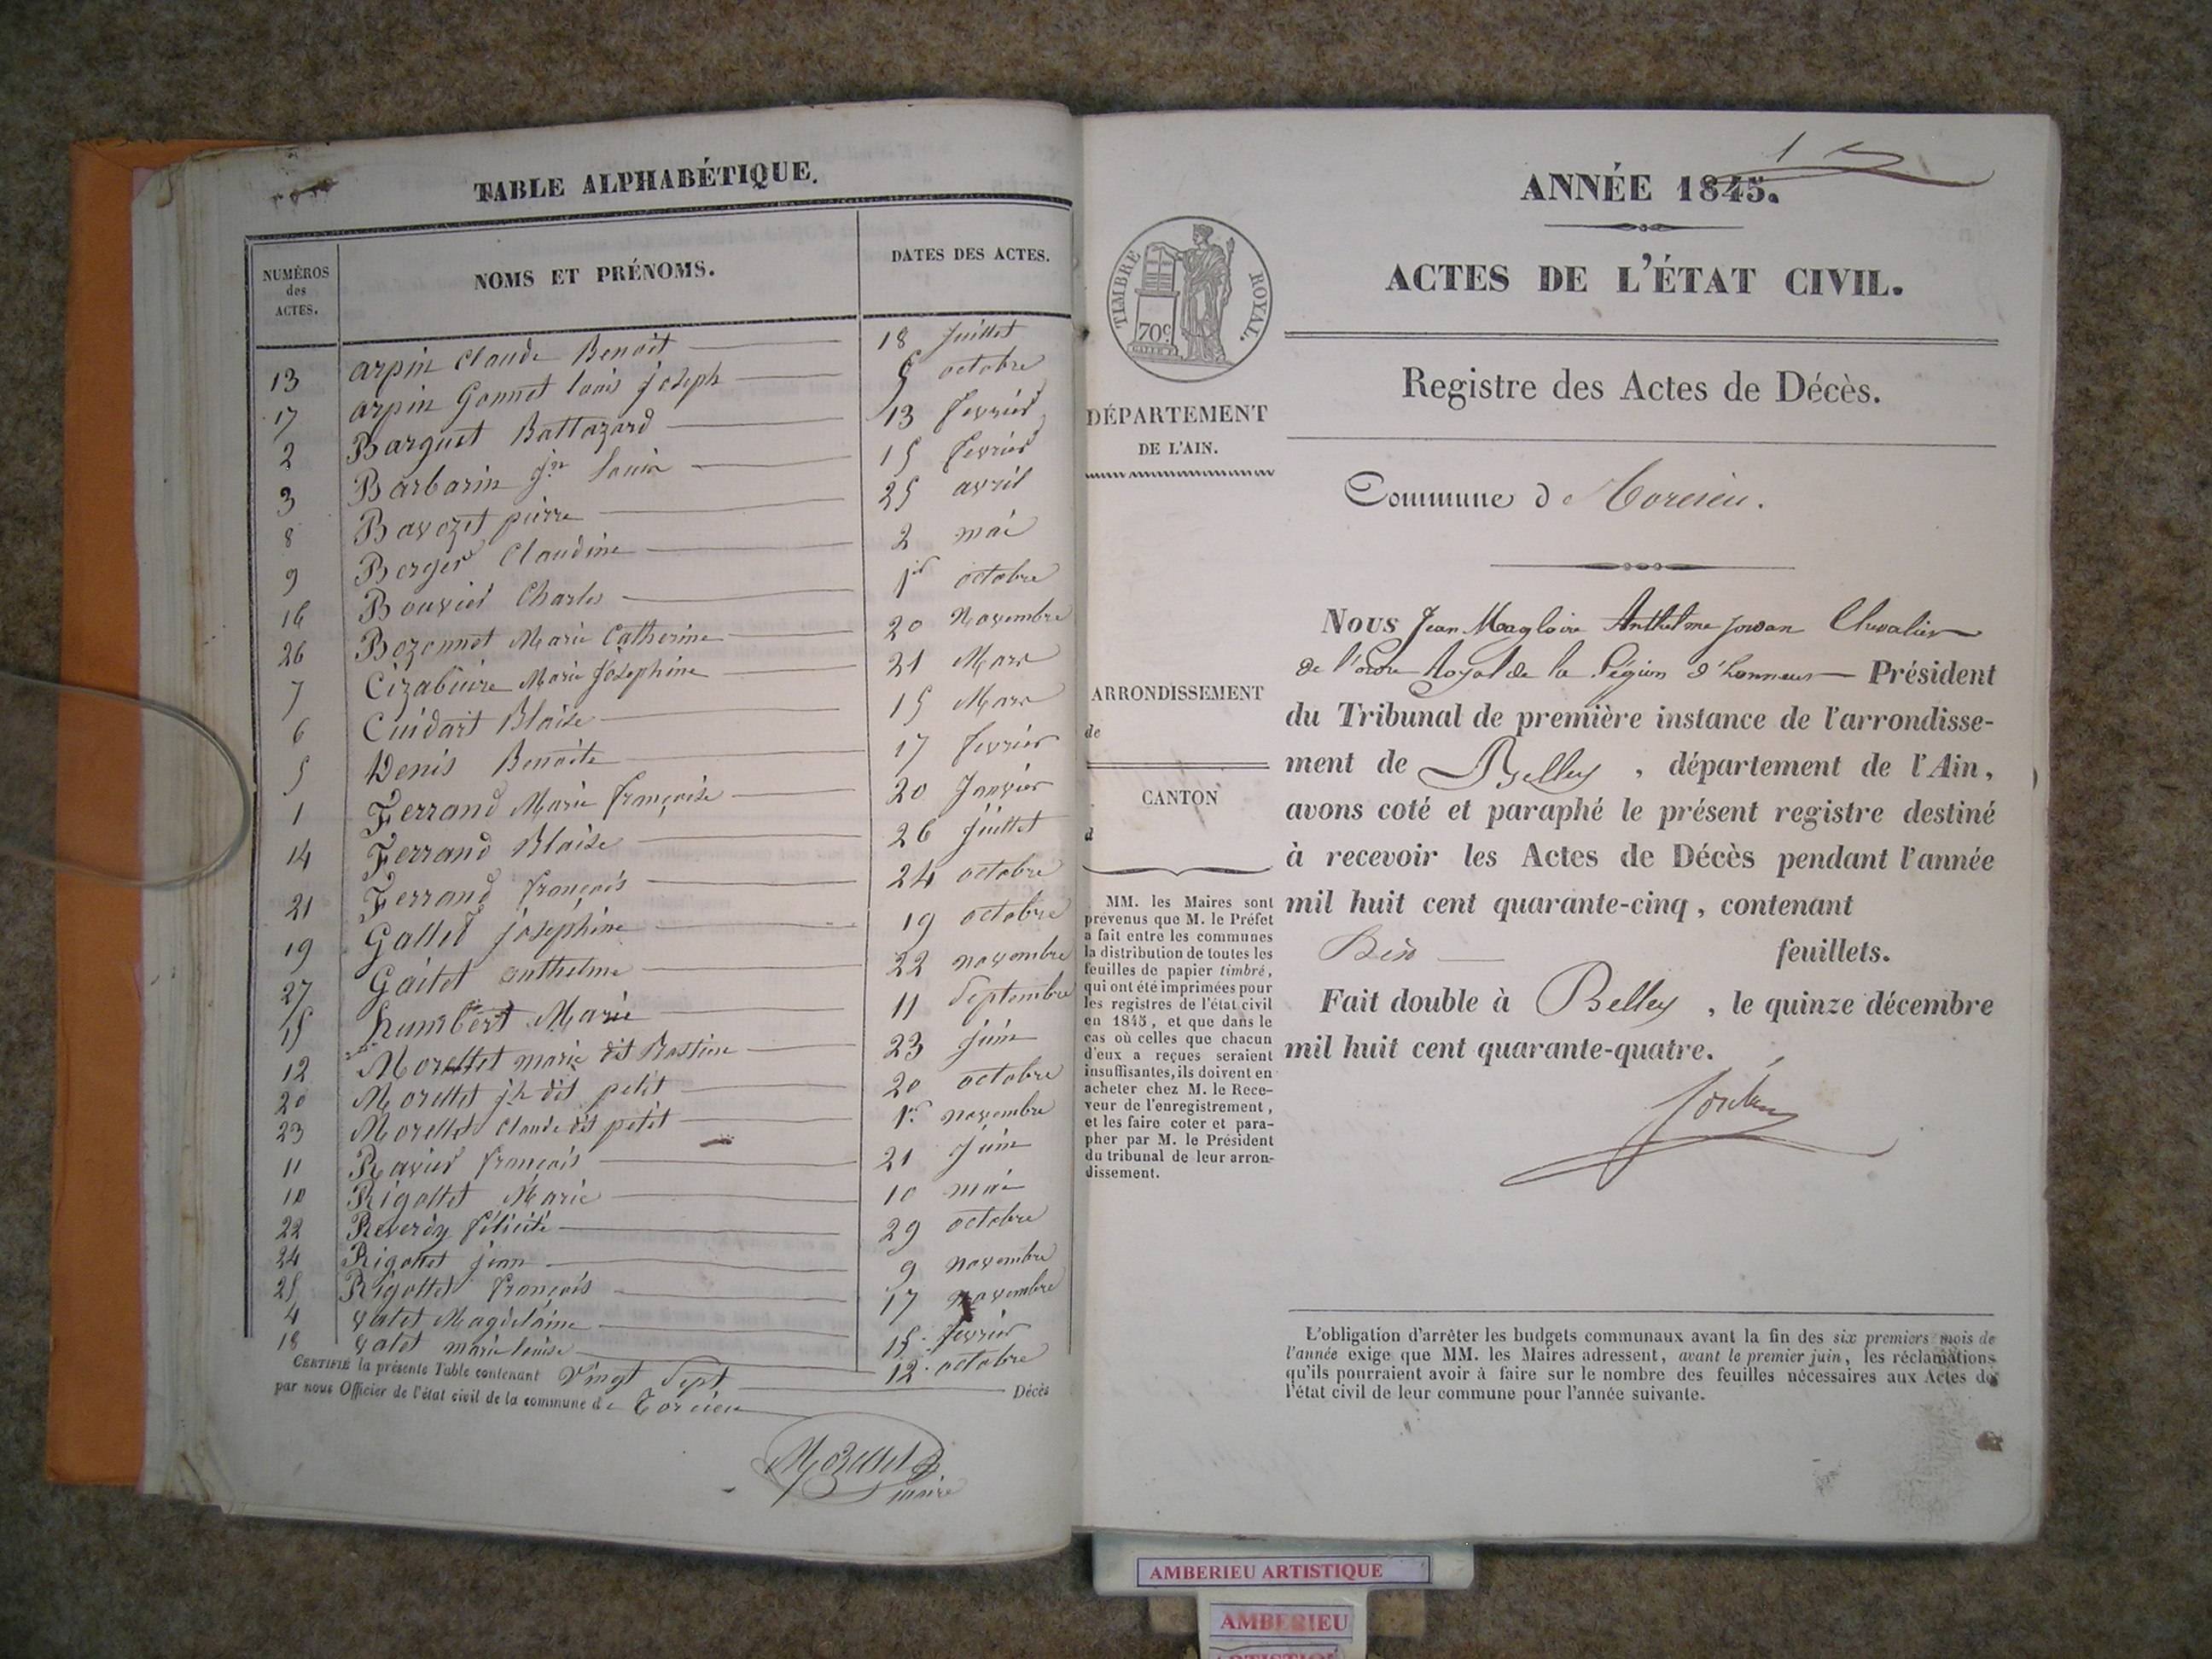 TABLE ALPHABÉTIQUE.
NUMÉROS
des
ACTES.
NOMS ET PRÉNOMS.
DATES DES ACTES.
13 arpin Claude Benoit 18 Juillet
17 arpin Gonnet louis joseph 5 octobre
2 Barquet Baltazard 13 fevrier
3 Barbarin jn Louis 15 fevrier
8 Bavozet pierre 25 avril
9 Berger Claudine 2 mai
16 Bouvier Charles 1er octobre
26 Bozonnet Marie Catherine 20 Novembre
7 Cizabuire Marie Josephine 21 Mars
6 Cuidart Blaise 15 Mars
5 Denis Benoite 17 fevrier
1 Ferrand Marie françoise 20 Janvier
14 Ferrand Blaise 26 Juillet
21 Ferrand françois 24 octobre
19 Gallet josephine 19 octobre
27 Gaitet anthelme 22 novembre
15 humbert Marie 11 Septembre
12 Morettet marie dit Bastien 23 juin
20 Morettet jh dit petit 20 octobre
23 Morettet Claude dit petit 1er novembre
11 Ravier françois 21 Juin
10 Rigottet Marie 10 mai
22 Reverdy félicité 29 octobre
24 Rigottet jean 9 novembre
25 Rigottet françois 17 novembre
4 valet Magdelaine 15 fevrier
18 valet marie louise 12 octobre
CERTIFIÉ la présente Table contenant vingt Sept Décès
par nous Officier de l'état civil de la commune de Torcieu
maire
1er
ANNÉE 1845.
ACTES DE L'ÉTAT CIVIL.
TIMBRE ROYAL.
70c
Registre des Actes de Décès.
DÉPARTEMENT
DE L'AIN.
Commune de Torcieu.
ARRONDISSEMENT
de
CANTON
d
MM. les Maires sont
prévenus que M. le Préfet
a fait entre les communes
la distribution de toutes les
feuilles de papier timbré,
qui ont été imprimées pour
les registres de l'état civil
en 1845, et que dans le
cas où celles que chacun
d'eux a reçues seraient
insuffisantes, ils doivent en
acheter chez M. le Rece-
veur de l'enregistrement,
et les faire coter et para-
pher par M. le Président
du tribunal de leur arron-
dissement.
Nous Jean Magloire Anthelme Chevalier
de l'ordre Royal de la Légion d'honneur Président
du Tribunal de première instance de l'arrondisse-
ment de Belley, département de l'Ain,
avons coté et paraphé le présent registre destiné
à recevoir les Actes de Décès pendant l'année
mil huit cent quarante-cinq, contenant
feuillets.
Fait double à Belley, le quinze décembre
mil huit cent quarante-quatre.
L'obligation d'arrêter les budgets communaux avant la fin des six premiers mois de
l'année exige que MM. les Maires adressent, avant le premier juin, les réclamations
qu'ils pourraient avoir à faire sur le nombre des feuilles nécessaires aux Actes de
l'état civil de leur commune pour l'année suivante.
AMBERIEU ARTISTIQUE
AMBERIEU
ARTISTIQUE